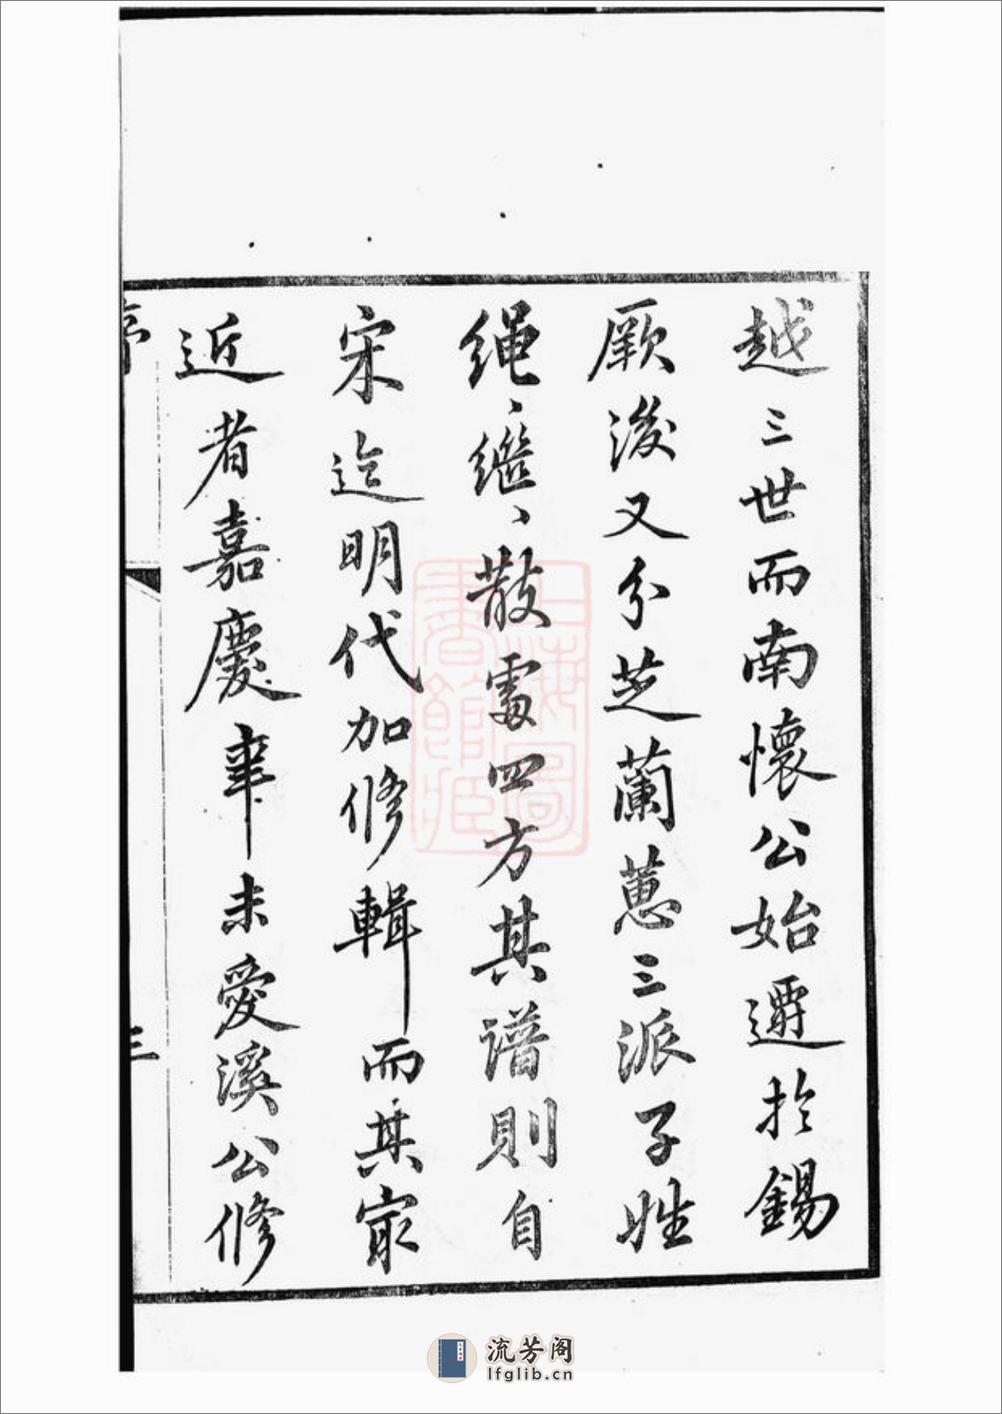 越三世而南懷公始遷於錫
厥後又分芝蘭蕙三派子姓
繩〻繼〻散處四方其譜則自
宋迄明代加修輯而其最
近者嘉慶辛未愛溪公修
序
三
上海圖書館藏
流芳阁
lfglib.cn